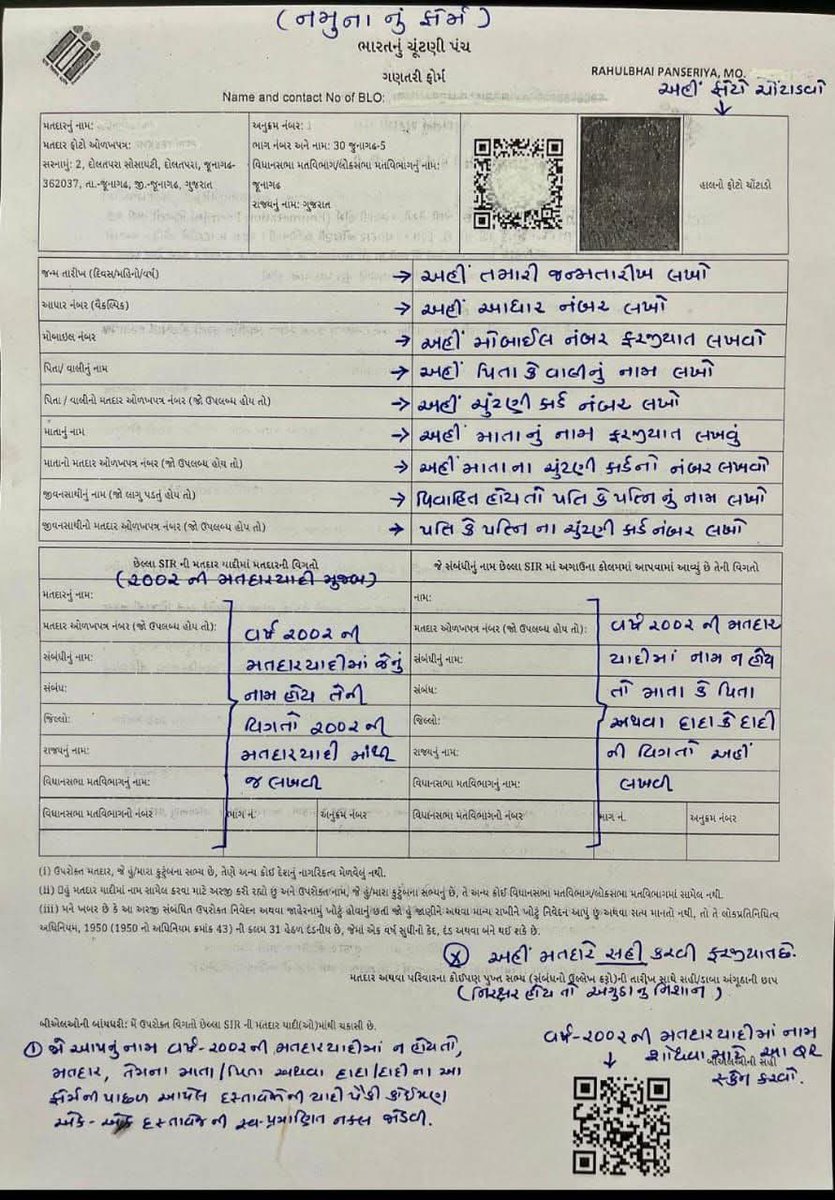 (નમુના નું ફોર્મ)
ભારતનું ચૂંટણી પંચ
ગણતરી ફોર્મ
RAHULBHAI PANSERIYA, MO.
Name and contact No of BLO:
અહીં ફોટો ચોંટાડવો
મતદારનું નામ:
મતદાર ફોટો ઓળખપત્ર:
સરનામું: 2, દોલતપરા સોસાયટી, દોલતપરા, જૂનાગઢ-
362037, તા.-જૂનાગઢ, જી.-જૂનાગઢ, ગુજરાત
અનુક્રમ નંબર:
ભાગ નંબર અને નામ: 30 જુનાગઢ-5
વિધાનસભા મતવિભાગ/લોકસભા મતવિભાગનું નામ:
જૂનાગઢ
રાજ્યનું નામ: ગુજરાત
હાલનો ફોટો ચોંટાડો
જન્મ તારીખ (દિવસ/મહિનો/વર્ષ) → અહીં તમારી જન્મતારીખ લખો
આધાર નંબર (વૈકલ્પિક) → અહીં આધાર નંબર લખો
મોબાઇલ નંબર → અહીં મોબાઈલ નંબર ફરજીયાત લખવો
પિતા/ વાલીનું નામ → અહીં પિતા કે વાલીનું નામ લખો
પિતા / વાલીનો મતદાર ઓળખપત્ર નંબર (જો ઉપલબ્ધ હોય તો) → અહીં ચુંટણી કાર્ડ નંબર લખો
માતાનું નામ → અહીં માતાનું નામ ફરજીયાત લખવું
માતાનો મતદાર ઓળખપત્ર નંબર (જો ઉપલબ્ધ હોય તો) → અહીં માતા ના ચુંટણી કાર્ડનો નંબર લખવો
જીવનસાથીનું નામ (જો લાગુ પડતું હોય તો) → વિવાહિત હોય તો પતિ કે પત્નિ નું નામ લખો
જીવનસાથીનો મતદાર ઓળખપત્ર નંબર (જો ઉપલબ્ધ હોય તો) → પતિ કે પત્નિ ના ચુંટણી કાર્ડ નંબર લખો
છેલ્લા SIR ની મતદાર યાદીમાં મતદારની વિગતો
(૨૦૦૨ ની મતદારયાદી મુજબ)
મતદારનું નામ:
મતદાર ઓળખપત્ર નંબર (જો ઉપલબ્ધ હોય તો):
સંબંધીનું નામ:
સંબંધ:
જિલ્લો:
રાજ્યનું નામ:
વિધાનસભા મતવિભાગનું નામ:
વિધાનસભા મતવિભાગનો નંબર
ભાગ નં.
અનુક્રમ નંબર
વર્ષ ૨૦૦૨ ની
મતદારયાદીમાં જેનું
નામ હોય તેની
વિગતો ૨૦૦૨ ની
મતદારયાદી માંથી
જ લખવી
જે સંબંધીનું નામ છેલ્લા SIR માં અગાઉના કોલમમાં આપવામાં આવ્યું છે તેની વિગતો
નામ:
મતદાર ઓળખપત્ર નંબર (જો ઉપલબ્ધ હોય તો):
સંબંધીનું નામ:
સંબંધ:
જિલ્લો:
રાજ્યનું નામ:
વિધાનસભા મતવિભાગનું નામ:
વિધાનસભા મતવિભાગનો નંબર
ભાગ નં.
અનુક્રમ નંબર
વર્ષ ૨૦૦૨ ની મતદાર
યાદીમાં નામ ન હોય
તો માતા કે પિતા
અથવા દાદા કે દાદી
ની વિગતો અહીં
લખવી
(i) ઉપરોક્ત મતદાર, જે હું/મારા કુટુંબના સભ્ય છે, તેણે અન્ય કોઈ દેશનું નાગરિકત્વ મેળવેલું નથી.
(ii) હું મતદાર યાદીમાં નામ સામેલ કરવા માટે અરજી કરી રહ્યો છું અને ઉપરોક્ત નામ, જે હું/મારા કુટુંબના સભ્યનું છે, તે અન્ય કોઈ વિધાનસભા મતવિભાગ/લોકસભા મતવિભાગમાં સામેલ નથી.
(iii) મને ખબર છે કે આ અરજી સંબંધિત ઉપરોક્ત નિવેદન અથવા જાહેરનામું ખોટું હોવાનું છતાં જો હું જાણીને અથવા માન્ય રાખીને ખોટું નિવેદન આપું છુ અથવા સત્ય માનતો નથી, તો તે લોકપ્રતિનિધિત્વ
અધિનિયમ, 1950 (1950 નો અધિનિયમ ક્રમાંક 43) ની કલમ 31 હેઠળ દંડનીય છે, જેમાં એક વર્ષ સુધીનો કેદ, દંડ અથવા બંને થઈ શકે છે.
Ⓧ અહીં મતદારે સહી કરવી ફરજીયાત છે.
મતદાર અથવા પરિવારના કોઈપણ પુખ્ત સભ્ય (સંબંધનો ઉલ્લેખ કરો)ની તારીખ સાથે સહી/ડાબા અંગૂઠાની છાપ
(નિરક્ષર હોય તો અંગુઠાનુ નિશાન)
બીએલઓની બાંયધરી: મેં ઉપરોક્ત વિગતો છેલ્લા SIR ની મતદાર યાદી(ઓ)માંથી ચકાસી છે.
① જો આપનું નામ વર્ષ-૨૦૦૨ની મતદારયાદીમાં ન હોય તો,
મતદાર, તેમના માતા/પિતા અથવા દાદા/દાદી ના આ
ફોર્મની પાછળ આપેલ દસ્તાવેજોની યાદી પૈકી કોઈપણ
એક-એક દસ્તાવેજ ની સ્વ-પ્રમાણિત નકલ જોડવી.
વર્ષ-૨૦૦૨ ની મતદારયાદીમાં નામ
શોધવા માટે આ QR
બીએલઓની સહી
સ્કેન કરવો.